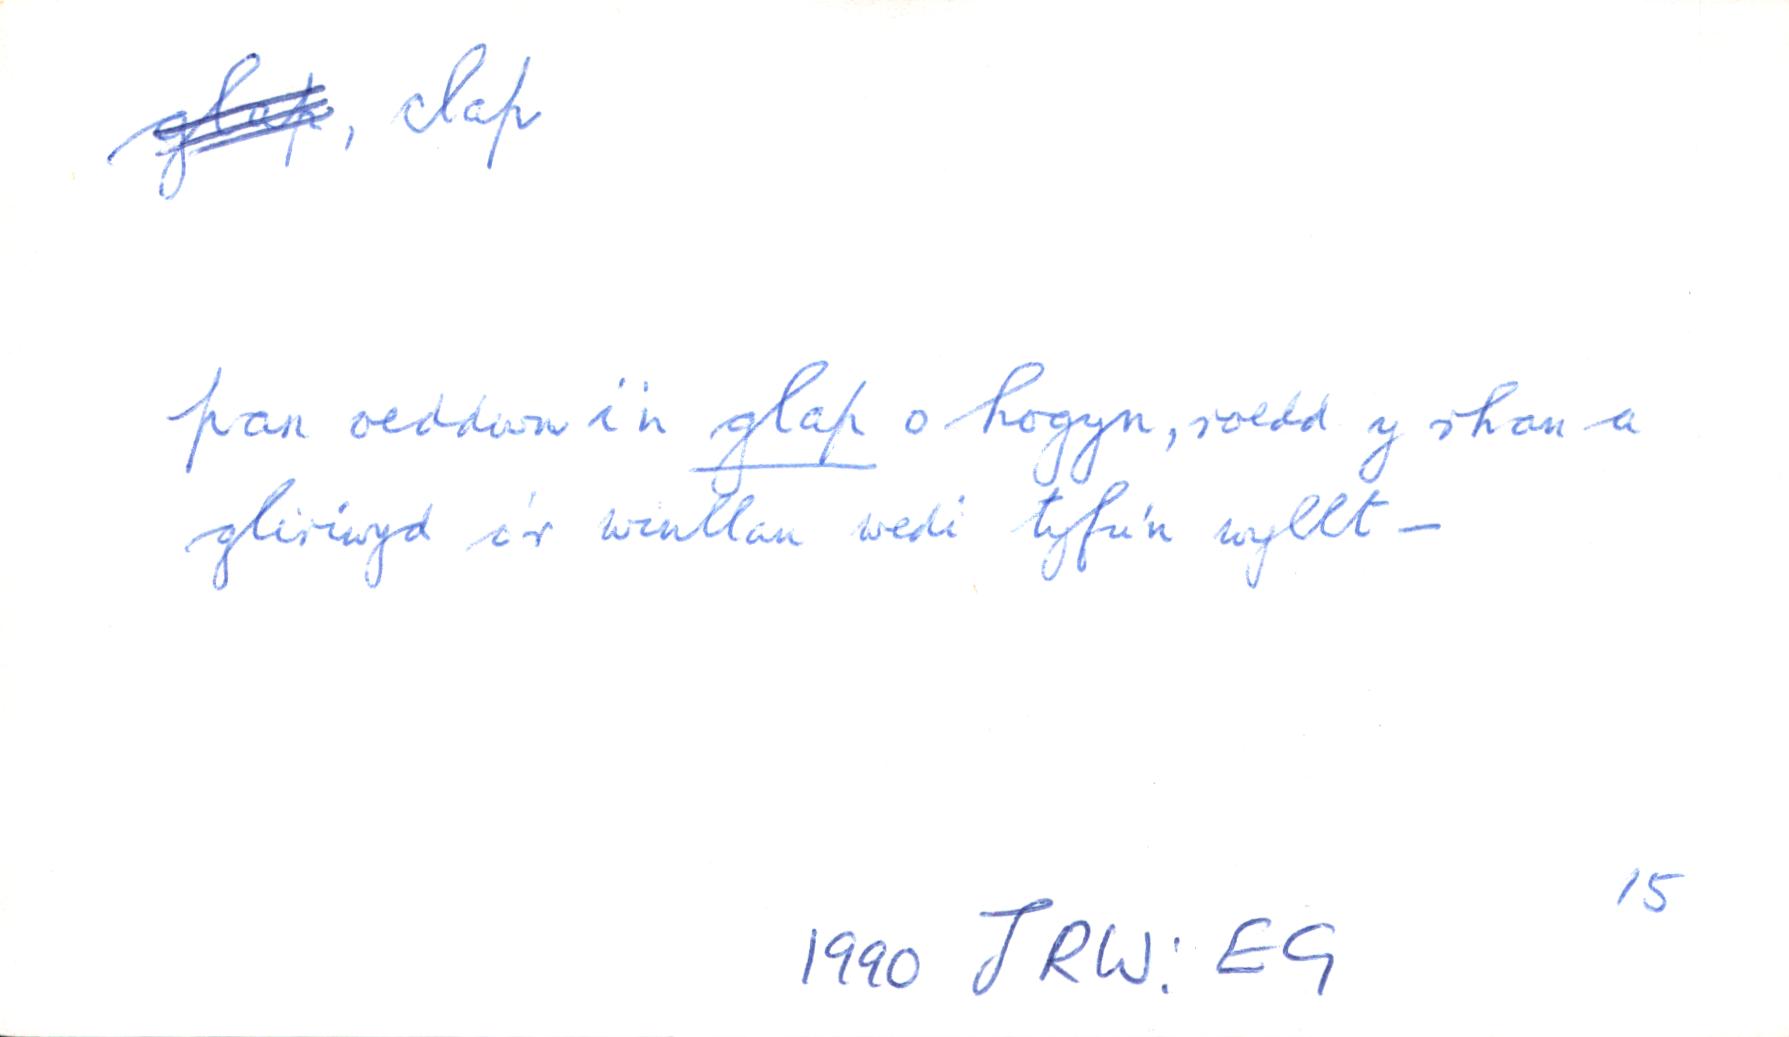 glap, clap
pan oeddwn i'n glap o hogyn, roedd y rhan a
gliriwyd o'r winllan wedi tyfu'n wyllt –
15
1990 JRW: EG